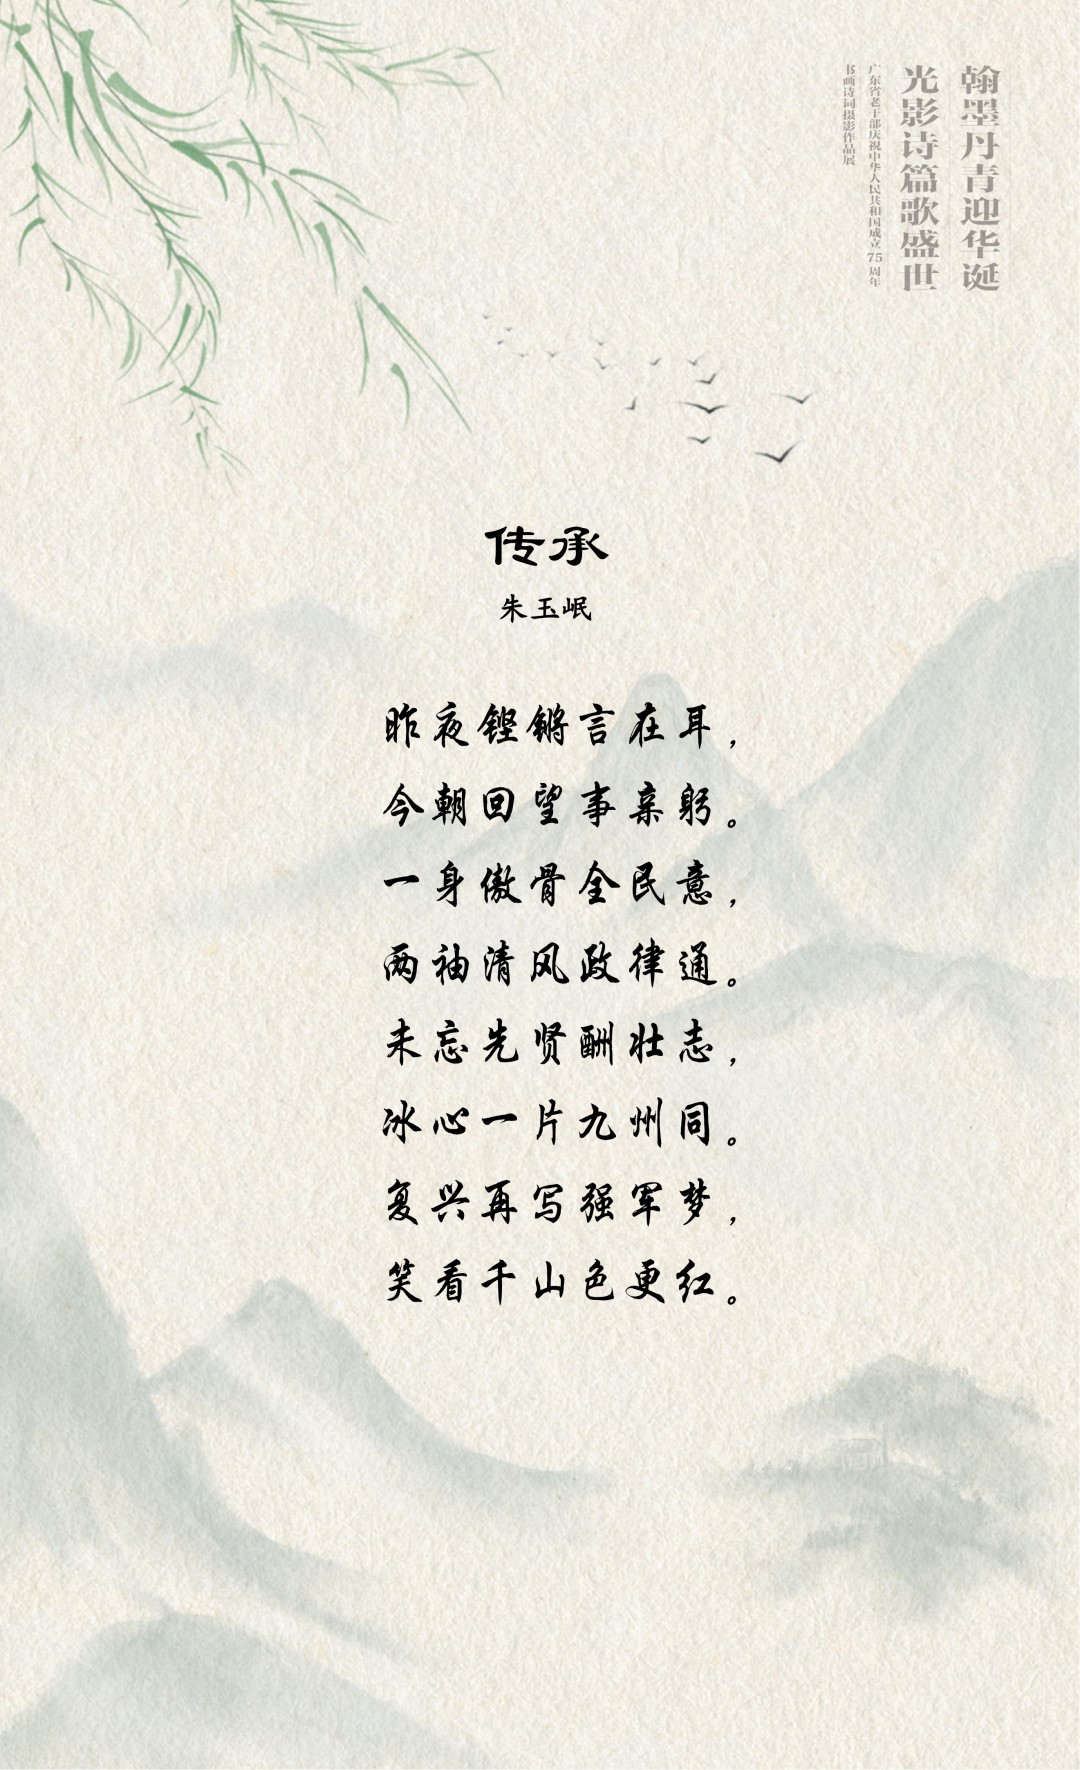 翰墨丹青迎华诞
光影诗篇歌盛世
广东省老干部庆祝中华人民共和国成立75周年
书画诗词摄影作品展
传承
朱玉岷
昨夜铿锵言在耳，
今朝回望事亲躬。
一身傲骨全民意，
两袖清风政律通。
未忘先贤酬壮志，
冰心一片九州同。
复兴再写强军梦，
笑看千山色更红。